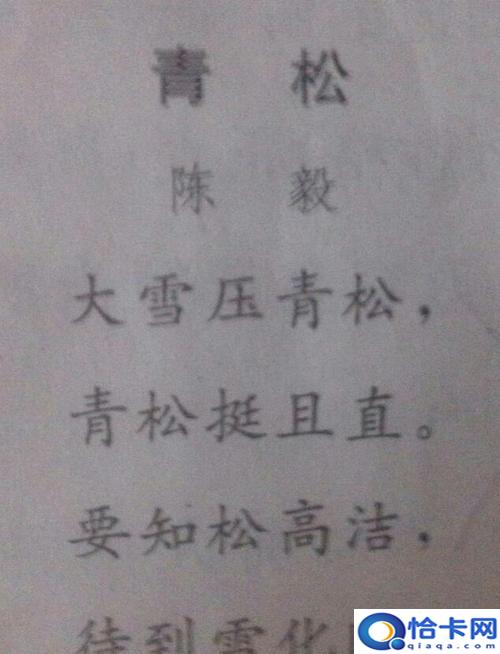 青 松
陈 毅
大雪压青松，
青松挺且直。
要知松高洁，
待到雪化
恰卡网
qiaqa.com